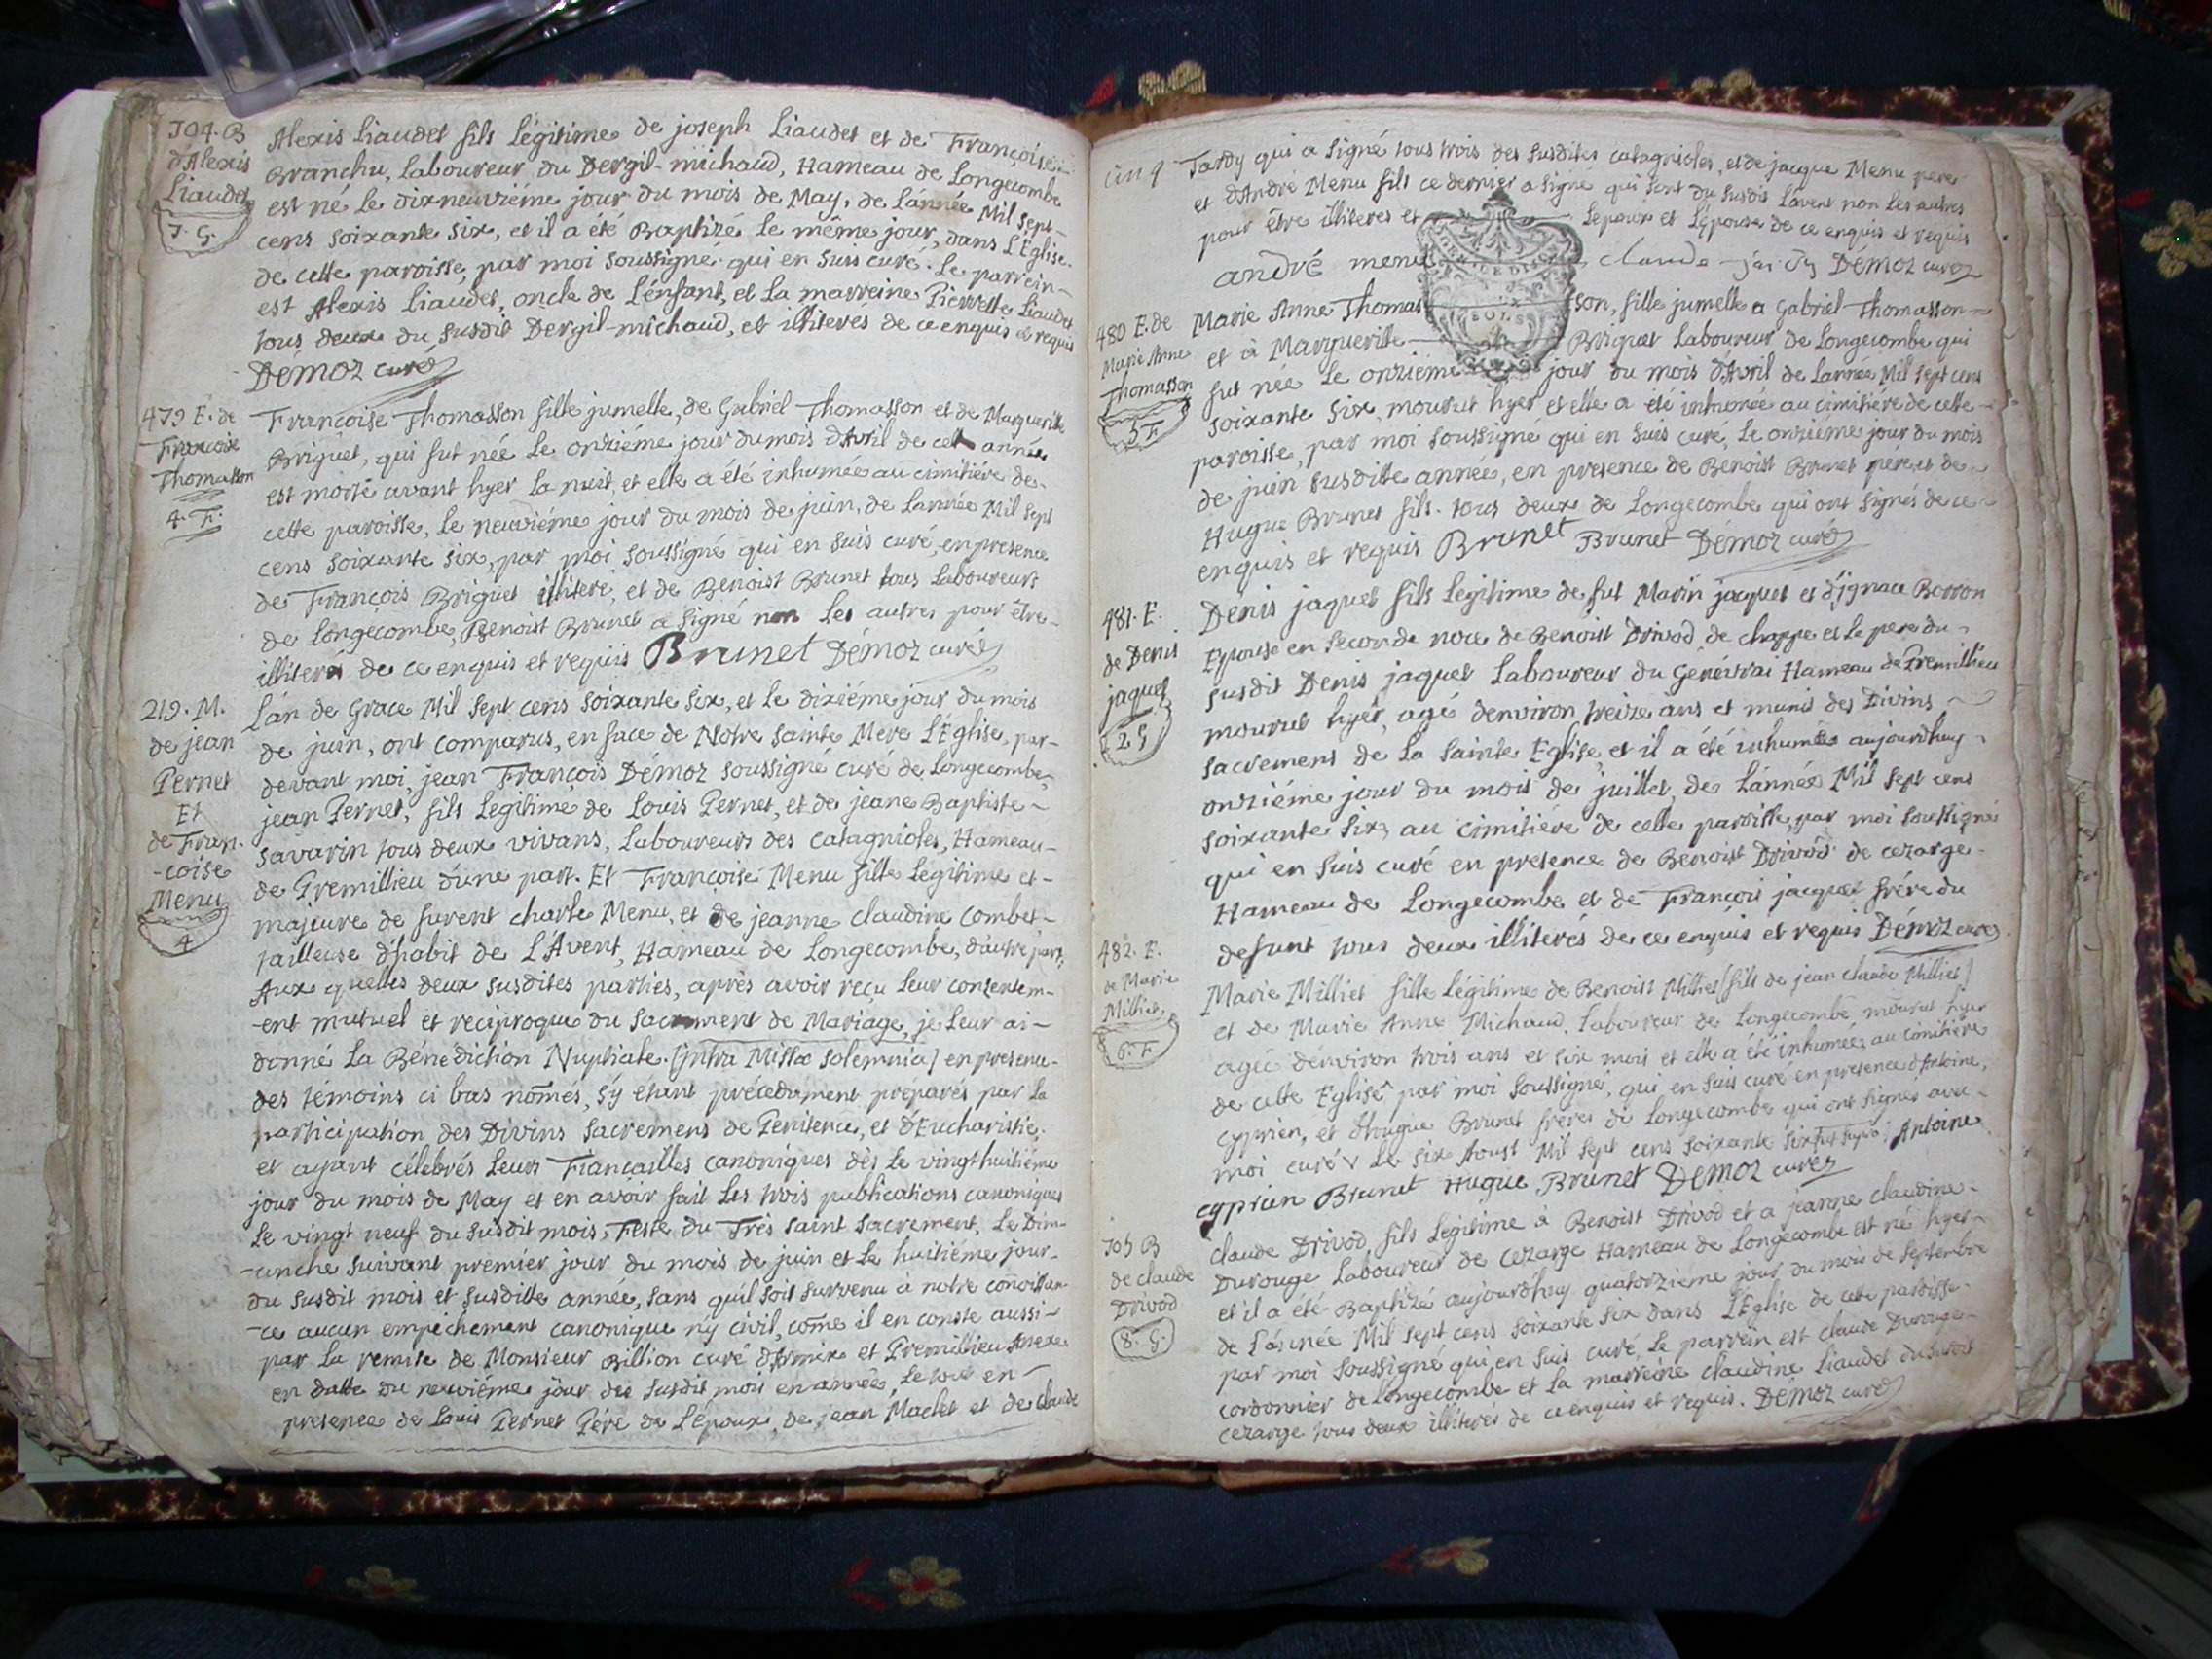 704. B
d'Alexis
Liaudet
7. G.
Alexis Liaudet fils légitime de joseph Liaudet et de Françoise
Branchu, Laboureur du Dergil-michaud, Hameau de Longecombe
est né le dixneuviéme jour du mois de May, de l'année Mil sept-
cens soixante six, et il a été Baptizé le même jour, dans L'Eglise
de cette paroisse, par moi soussigné qui en suis curé. Le parrein-
est Alexis Liaudet, oncle de l'énfant, et La marreine Pierrette Liaudet
tous deux du susdit Dergil-michaud, et illiterés de ce enquis et requis
Démoz curé
479 E. de
Françoise
Thomasson
4. F.
Françoise Thomasson fille jumelle, de Gabriel Thomasson et de Marguerite
Briguet, qui fut née le onziéme jour du mois d'Avril de cette année
est morte avant hyer la nuit, et elle a été inhumée au cimitiére de-
cette paroisse, le neuviéme jour du mois de juin, de l'année Mil sept
cens soixante six, par moi soussigné qui en suis curé, en presence
de François Briguet illiteré, et de Benoist Brunet tous Laboureurs
de Longecombe, Benoist Brunet a signé non Les autres pour être-
illiterés de ce enquis et requis Brunet Démoz curé
219. M.
de jean
Pernet
Et
de Fran-
-coise
Menu
4
L'an de Grace Mil sept cens soixante six, et le dixiéme jour du mois
de juin, ont comparus, en face de Notre sainte Mere L'Eglise, par-
devant moi, jean François Démoz soussigné curé de Longecombe,
jean Pernet, fils Legitime de Louis Pernet, et de jeane Baptiste-
savarin tous deux vivans, Laboureurs des catagnioles, Hameau-
de Premillieu d'une part. Et Françoise Menu fille Légitime et-
majeure de furent charle Menu, et de jeanne claudine Combet-
tailleuse d'habit de L'Avent, Hameau de Longecombe, d'autre part,
Aux quelles deux susdites parties, aprés avoir reçu Leur consentem-
-ent mutuel et reciproque du sacrement de Mariage, je Leur ai-
donné La Bénediction Nuptiale. (intra Missæ solemnia) en presence-
des témoins ci bas només, s'y etant précedament préparés par la
participation des Divins sacremens de Penitence, et d'Eucharistie.
et ayant célebrés Leurs Fiancailles canoniques dès Le vingthuitiéme
jour du mois de May et en avoir fait Les trois publications canoniques
Le vingt neuf du susdit mois, Feste du Trés saint sacrement, Le Dim-
-anche suivant premiér jour du mois de juin et Le huitiéme jour-
du susdit mois et susditte année, sans qu'il soit survenu à notre conoissan-
-ce aucun empéchement canonique n'y civil, come il en conste aussi-
par La remise de Monsieur Billion curé d'Armix et Premillieu Anexe
en datte du neuviéme jour du susdit mois en année, Le tout en-
presence de Louis Pernet Pére de L'époux, de jean Maclet et de claude
Tardy qui a signé tous trois des susdites catagnioles, et de jacque Menu pere
et d'André Menu fils ce dernier a signé qui sont du susdit L'avent non Les autres
pour être illiteres et Lepoux et L'épouse de ce enquis et requis
andré menu claude Démoz curé
480 E. de
Marie Anne
Thomasson
5 F.
Marie Anne Thomasson, fille jumelle a Gabriel Thomasson-
et à Marguerite Briguet Laboureur de Longecombe qui
fut née Le onziéme jour du mois d'Avril de l'année Mil sept cens
soixante six, mourut hyer et elle a eté inhumée au cimitiére de cette-
paroisse, par moi soussigné qui en suis curé, Le onzieme jour du mois
de juin susditte année, en presence de Benoist Brunet pére, et de
Hugue Brunet fils. tous deux de Longecombe qui ont signés de ce-
enquis et requis Brunet Brunet Démoz curé
481. E.
de Denis
jaquet
2 G
Denis jaquet fils Legitime de fut Marin jacquet et d'jgnace Borron
Epouse en seconde noce de Benoist Drivod de chappe et Le pere du-
susdit Denis jaquet Laboureur du Genévrai Hameau de Premillieu
mourut hyer, agé denviron treize ans et munis des Divins
sacremens de La sainte Eglise, et il a été inhumé aujourdhuy-
onziéme jour du mois de juillet, de L'année Mil sept cens
soixante six, au cimitiére de cette paroisse, par moi soussigné
qui en suis curé en presence de Benoist Drivod de cezarge-
Hameau de Longecombe et de François jacquet frére du
defunt tous deux illiterés de ce enquis et requis Démoz curé
482. E.
de Marie
Milliet
6. F
Marie Milliet fille Légitime de Benoist Milliet (fils de jean claude Milliet)
et de Marie Anne Michaud, Laboureur de Longecombe, mourut hyer
agée d'énviron trois ans et six mois et elle a été inhumée, au cimitiére
de cette Eglise par moi soussigné, qui en suis curé en presence d'Antoine,
cyprien, et d'hugue Brunet fréres de Longecombe qui ont signés avec-
moi curé Le six Aoust Mil sept cens soixante six Antoine
cyprien Brunet Hugue Brunet Démoz curé
705 B
de claude
Drivod
8. G.
Claude Drivod, fils Legitime à Benoist Drivod et a jeanne claudine-
Durouge Laboureur de cezarge Hameau de Longecombe est né hyer
et il a été Baptizé aujourdhuy quatorzieme jour du mois de septembre
de L'année Mil sept cens soixante six dans L'Eglise de cette paroisse-
par moi soussigné qui en suis curé, Le parrein est claude Durouge-
cordonnier de Longecombe et La marreine claudine Liaudet du susdit
cezarge tous deux illiterés de ce enquis et requis. Démoz curé